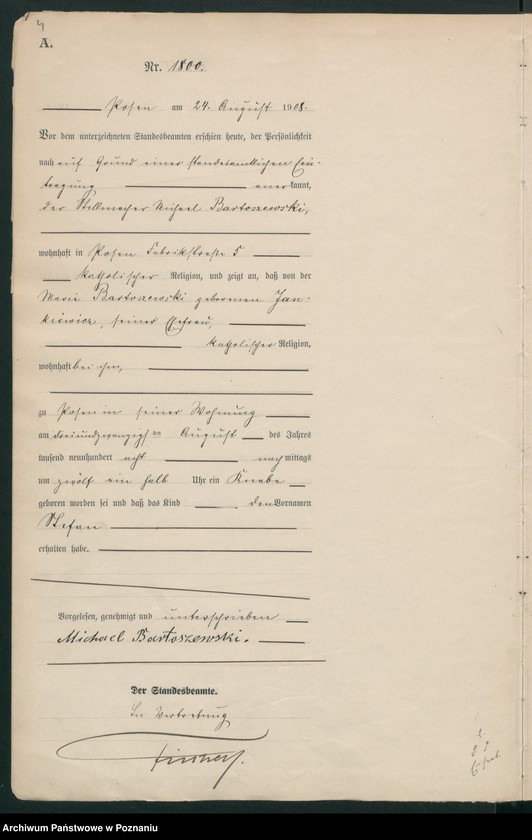 4
A.
Nr. 1800.
Posen am 24. August 1908.
Vor dem unterzeichneten Standesbeamten erschien heute, der Persönlichkeit
nach auf Grund einer standesamtlichen Ein-
tragung anerkannt,
der Stellmacher Michael Bartoszewski,
wohnhaft in Posen Fabrikstraße 5
katholischer Religion, und zeigt an, daß von der
Marie Bartoszewski geborenen Jan-
kiewicz, seiner Ehefrau,
katholischer Religion,
wohnhaft bei ihm,
zu Posen in seiner Wohnung
am dreiundzwanzigsten August des Jahres
tausend neunhundert acht nachmittags
um zwölf ein halb Uhr ein Knabe
geboren worden sei und daß das Kind den Vornamen
Stefan
erhalten habe.
Vorgelesen, genehmigt und unterschrieben
Michael Bartoszewski.
Der Standesbeamte.
In Vertretung
Archiwum Państwowe w Poznaniu